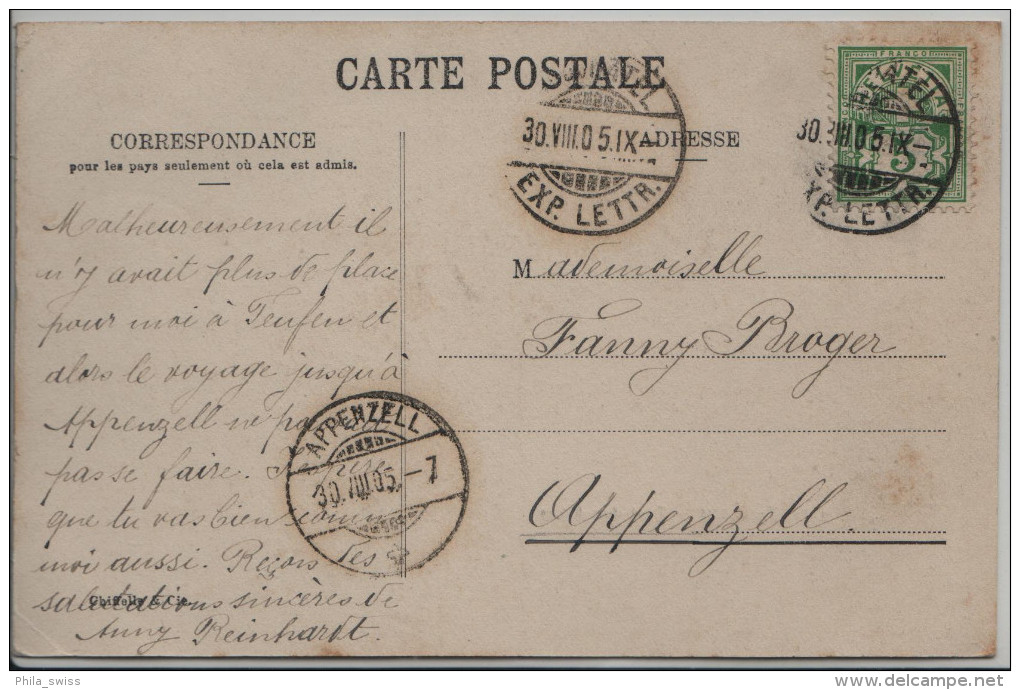 CARTE POSTALE
CORRESPONDANCE
pour les pays seulement où cela est admis.
ADRESSE
FRANCO
5
30.VIII.05.IX
EXP. LETTR.
30.VIII.05.IX
EXP. LETTR.
Mademoiselle
Fanny Broger
Appenzell.
Malheureusement il
n'y avait plus de place
pour moi à Teufen et
alors le voyage jusqu'à
Appenzell
passe faire. J'espère
que tu vas bien comme
moi aussi. Reçois les
salutations sincères de
Anny Reinhardt.
APPENZELL
30.VIII.05.-7
Chiffelle & Cie.
Phila_swiss
delcampe.net